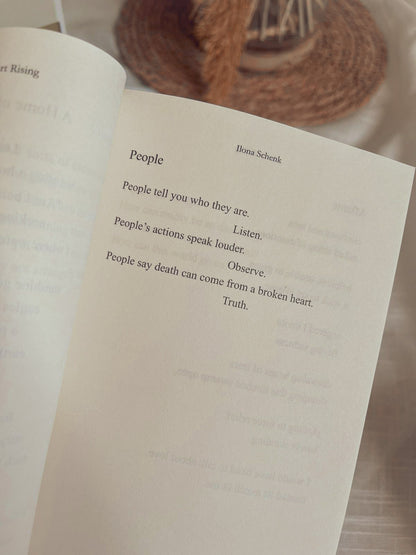 Rising
Ilona Schenk
People
People tell you who they are.
Listen.
People's actions speak louder.
Observe.
People say death can come from a broken heart.
Truth.